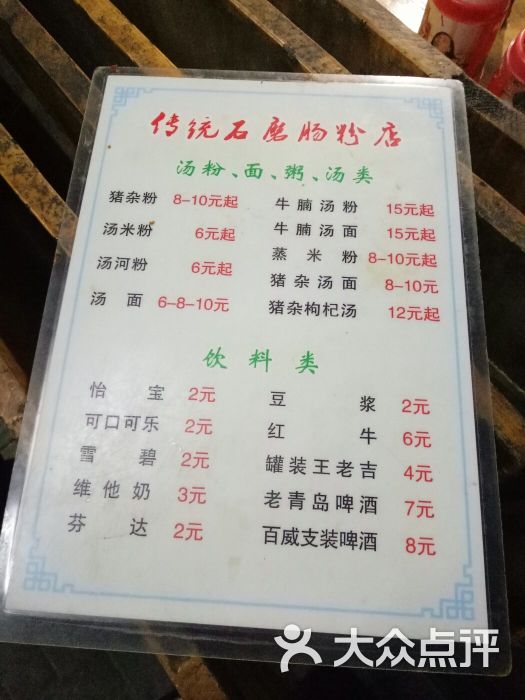 传统石磨肠粉店
汤粉、面、粥、汤类
猪杂粉 8-10元起
汤米粉 6元起
汤河粉 6元起
汤面 6-8-10元
牛腩汤粉 15元起
牛腩汤面 15元起
蒸米粉 8-10元起
猪杂汤面 8-10元
猪杂枸杞汤 12元起
饮料类
怡宝 2元
可口可乐 2元
雪碧 2元
维他奶 3元
芬达 2元
豆浆 2元
红牛 6元
罐装王老吉 4元
老青岛啤酒 7元
百威支装啤酒 8元
大众点评